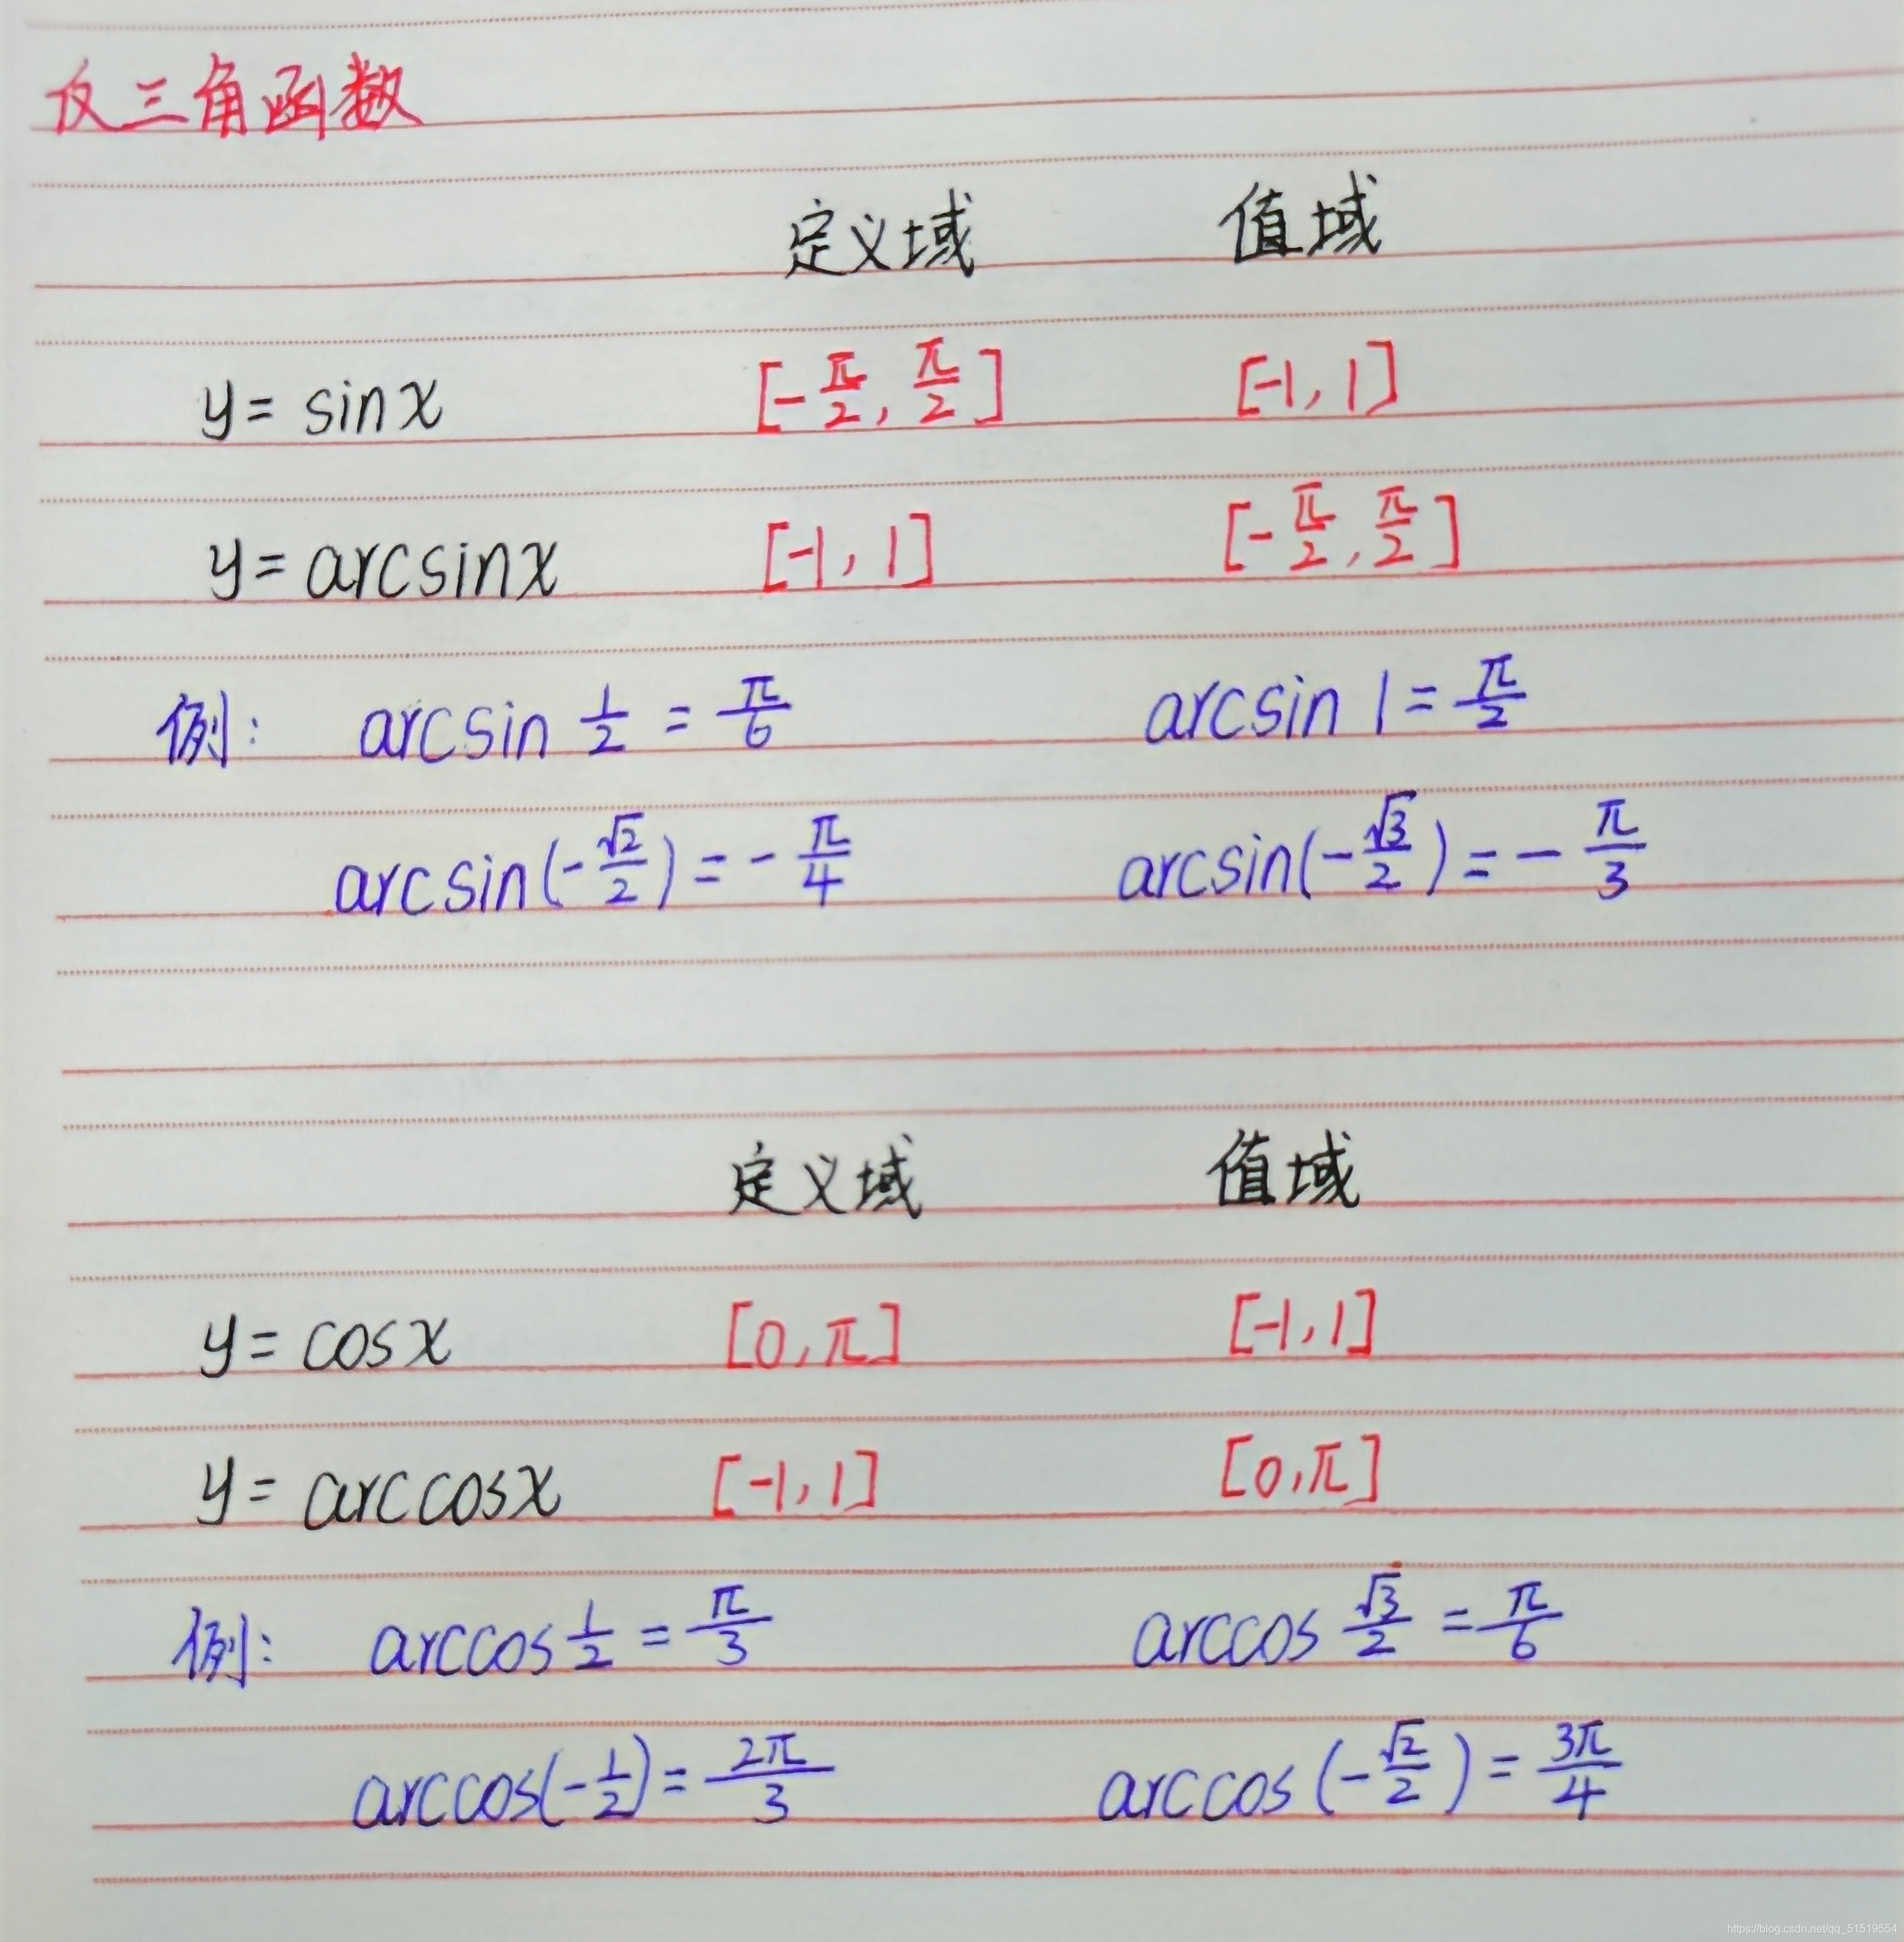 反三角函数
定义域 值域
y = sinx [-π/2, π/2] [-1, 1]
y = arcsinx [-1, 1] [-π/2, π/2]
例: arcsin 1/2 = π/6 arcsin 1 = π/2
arcsin(-√2/2) = -π/4 arcsin(-√3/2) = -π/3
定义域 值域
y = cosx [0, π] [-1, 1]
y = arccosx [-1, 1] [0, π]
例: arccos 1/2 = π/3 arccos √3/2 = π/6
arccos(-1/2) = 2π/3 arccos(-√2/2) = 3π/4
https://blog.csdn.net/qq_51519554